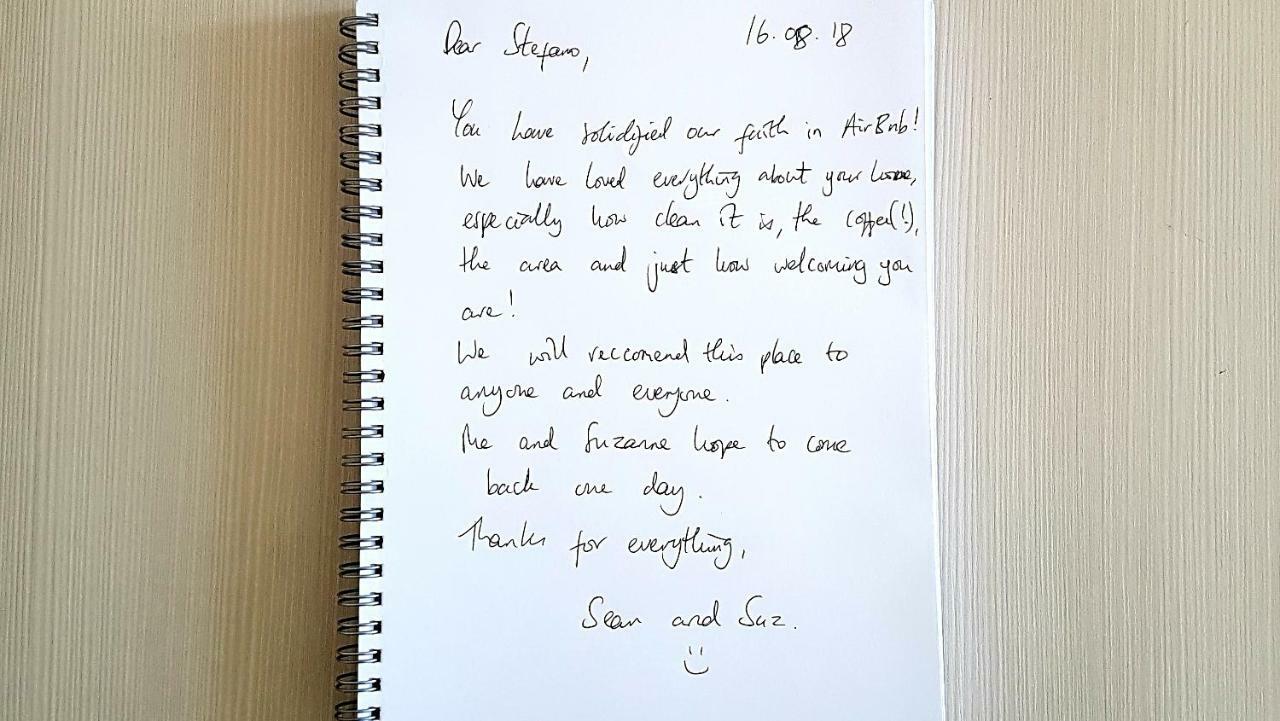 Dear Stefano, 16.08.18
You have solidified our faith in AirBnb!
We have loved everything about your home,
especially how clean it is, the coffee(!),
the area and just how welcoming you
are!
We will reccomend this place to
anyone and everyone.
Me and Suzanne hope to come
back one day.
Thanks for everything,
Sean and Suz.